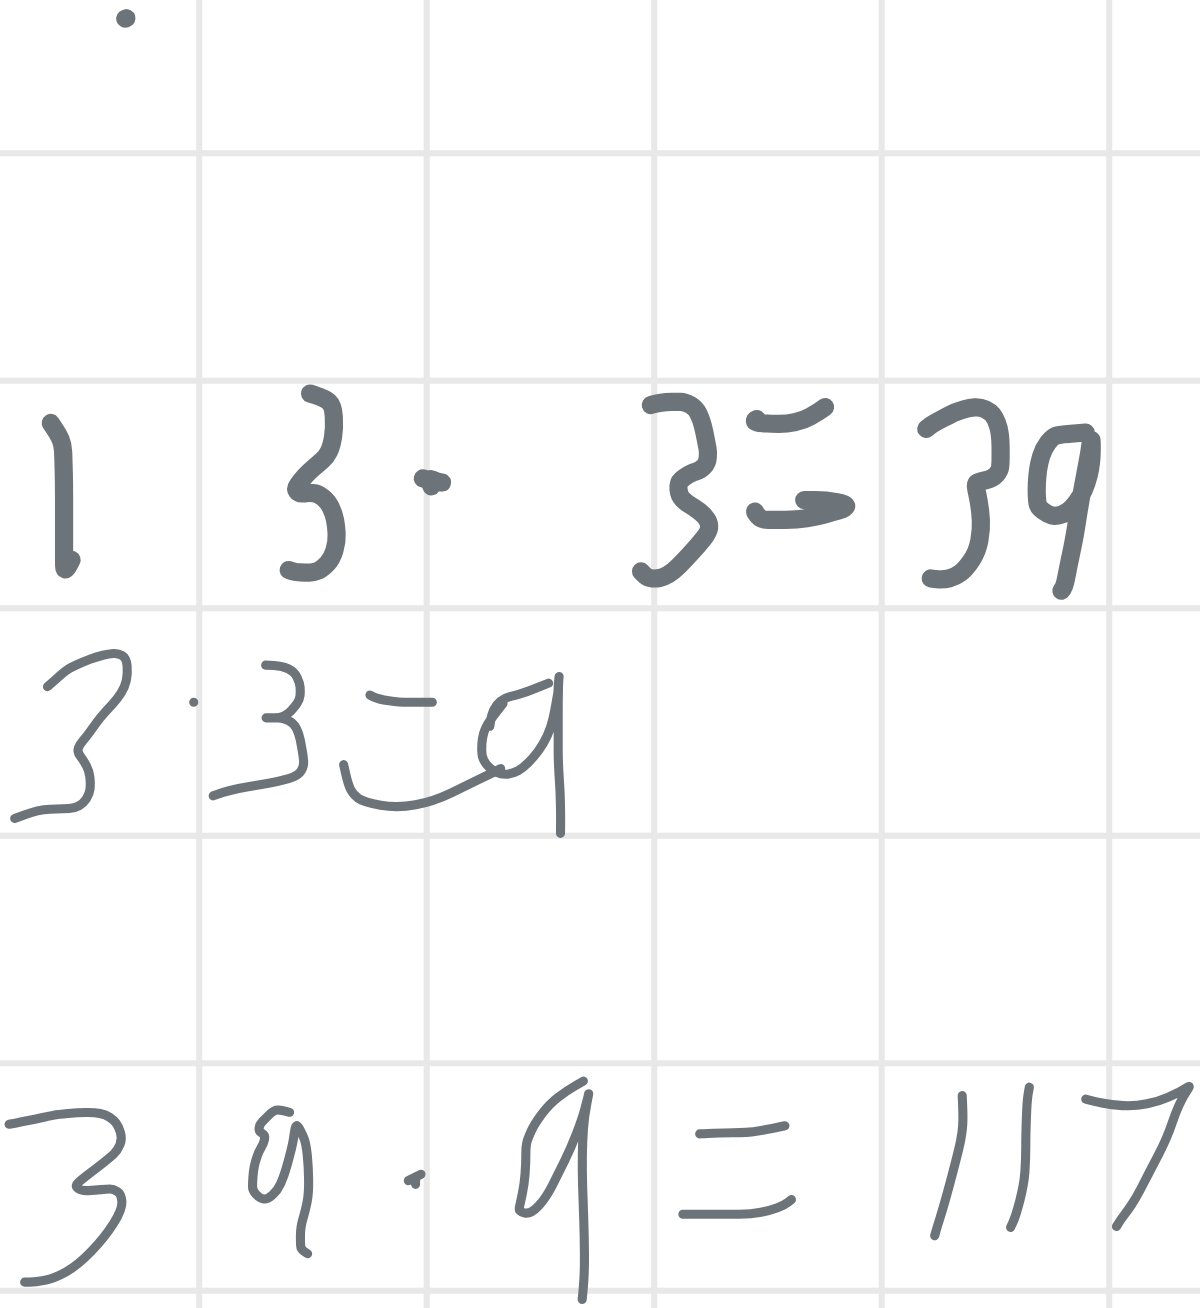 13·3=39
3·3=9
39·9=117